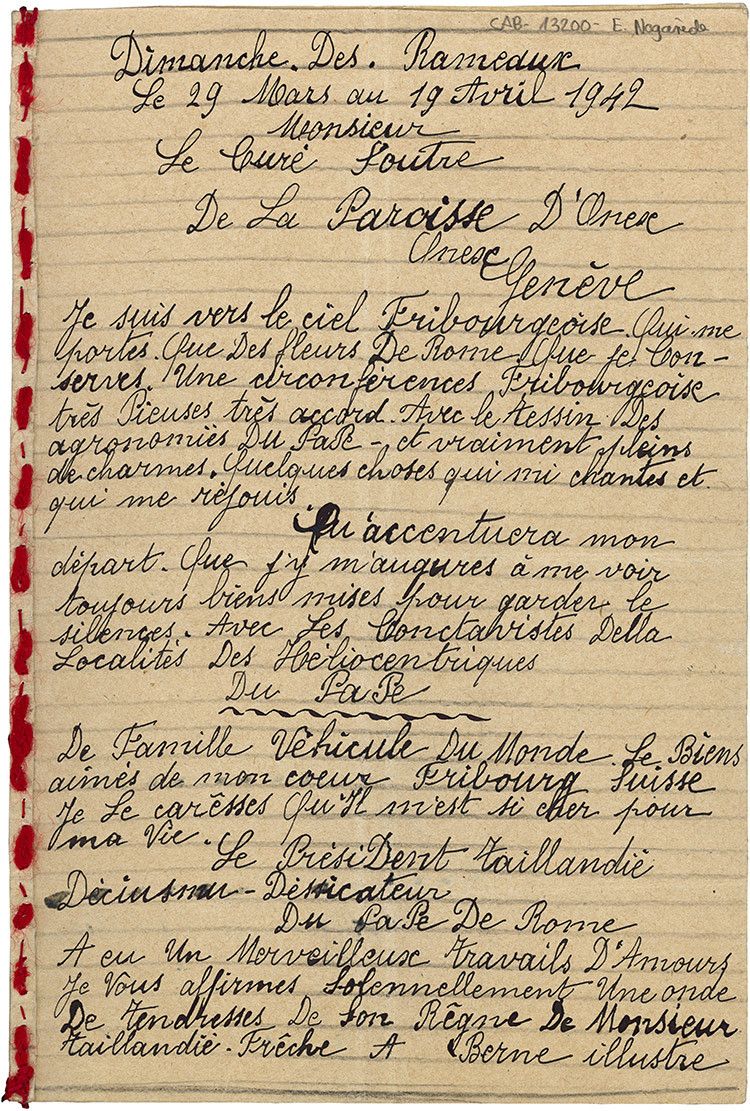 CAB- 13200- E. Nogarède
Dimanche. Des. Rameaux
Le 29 Mars au 19 Avril 1942
Monsieur
Le Curé Loutre
De La Paroisse D'Onex
Onex
Genève
Je suis vers le ciel Fribourgeoise Qui me
portes. Que Des fleurs De Rome Que je Con-
serves. Une circonférences Fribourgeoise
très Pieuses très accord. Avec le tessin Des
agronomiës Du PaPe - et vraiment pleins
de charmes. Quelques choses qui mi chantes et
qui me réjouis
Qu'accentuera mon
départ. Que j'y m'augures à me voir
toujours biens mises pour garder le
silences. Avec Les Conctavistes Della
Localités Des Héliocentriques
Du PaPe
De Famille Véhicule Du Monde Le Biens
aimés de mon coeur Fribourg Suisse
Je Le carêsses Qu'Il m'est si cher pour
ma Vie.
Le PrésiDent Taillandié
Du PaPe De Rome
A eu Un Merveilleux travails D'Amours
Je Vous affirmes Solennellement Une onde
De tendresses De Son Règne De Monsieur
Taillandié-Frêche A Berne illustre